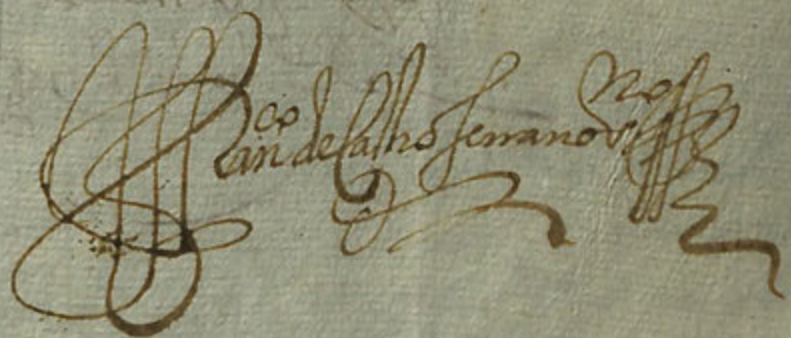 Franco de Castro serrano